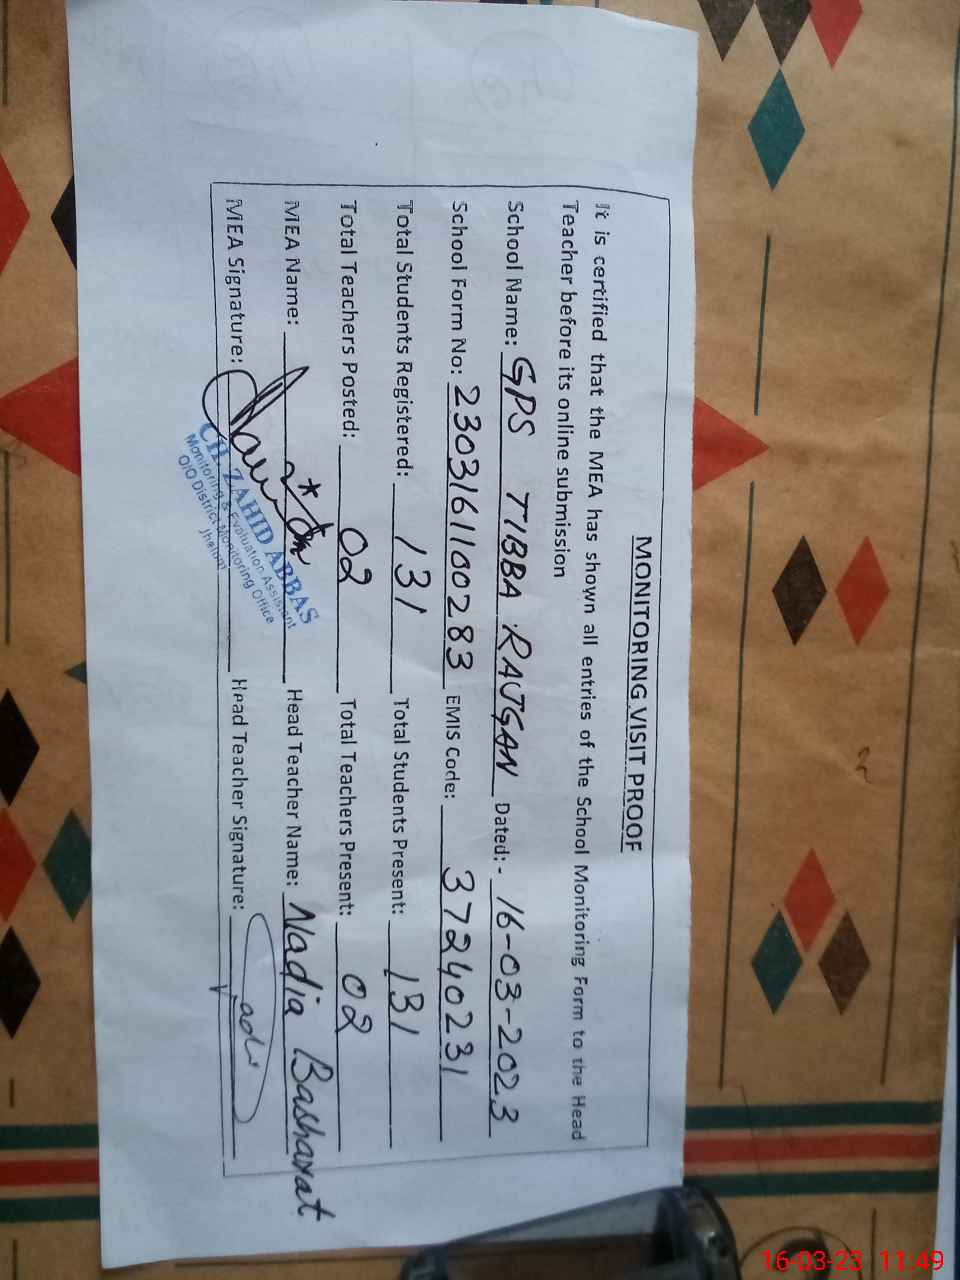 MONITORING VISIT PROOF
It is certified that the MEA has shown all entries of the School Monitoring Form to the Head
Teacher before its online submission
School Name: GPS TIBBA RAJGAN Dated:- 16-03-2023
School Form No: 2303161100283 EMIS Code: 37240231
Total Students Registered: 131 Total Students Present: 131
Total Teachers Posted: 02 Total Teachers Present: 02
MEA Name: Head Teacher Name: Nadia Basharat
MEA Signature: Head Teacher Signature:
CH. ZAHID ABBAS
Monitoring & Evaluation Assistant
O/O District Monitoring Office
Jhelum
16-03-23 11:49